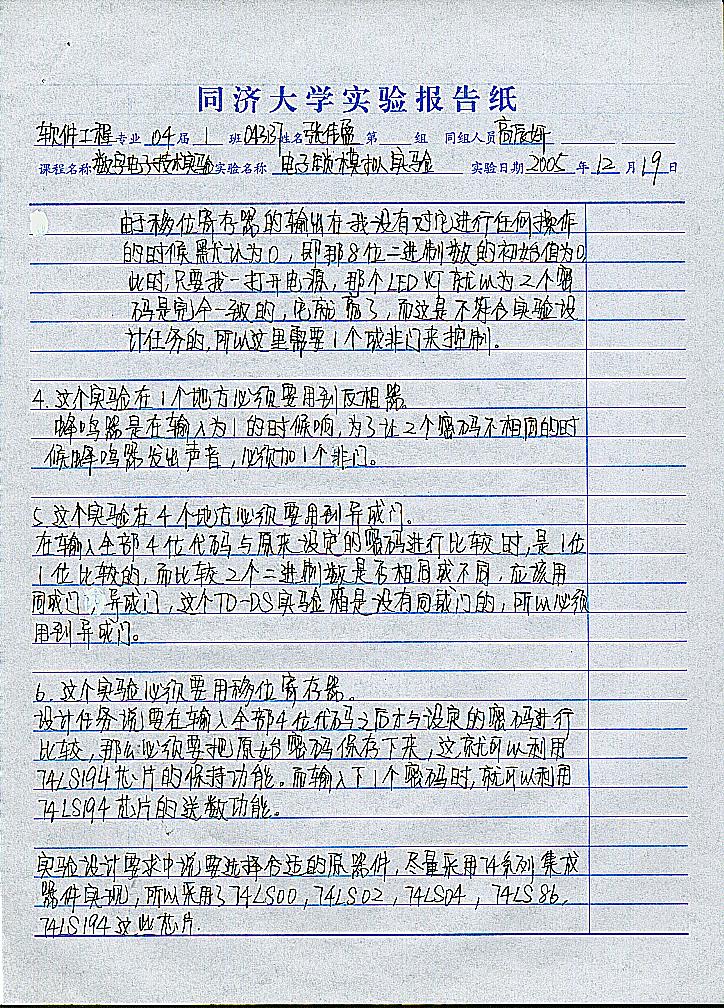 同济大学实验报告纸
软件工程专业 04届 1 班043137姓名张伟 第 组 同组人员高辰妍
课程名称数字电子技术实验实验名称 电子锁模拟实验 实验日期2005年12月19日
由于移位寄存器的输出在我没有对它进行任何操作
的时候默认为0,即那8位二进制数的初始值为0
此时,只要我一打开电源,那个LED灯就认为2个密
码是完全一致的,它就亮了,而这是不符合实验设
计任务的,所以这里需要1个或非门来控制。
4.这个实验在1个地方必须要用到反相器
蜂鸣器是在输入为1的时候响,为了让2个密码不相同的时
候蜂鸣器发出声音,必须加1个非门。
5 这个实验在4个地方必须要用到异或门。
在输入全部4位代码与原来设定的密码进行比较时,是1位
1位比较的,而比较2个二进制数是否相同或不同,应该用
同或门,异或门,这个TD-DS实验箱是没有同或门的,所以必须
用到异或门。
6.这个实验必须要用移位寄存器。
设计任务说要在输入全部4位代码之后才与设定的密码进行
比较,那么必须要把原始密码保存下来,这就可以利用
74LS194芯片的保持功能。而输入下1个密码时,就可以利用
74LS194芯片的送数功能。
实验设计要求中说要选择合适的原器件,尽量采用74系列集成
器件实现,所以采用了74LS00,74LS02,74LS04,74LS86,
74LS194这些芯片.